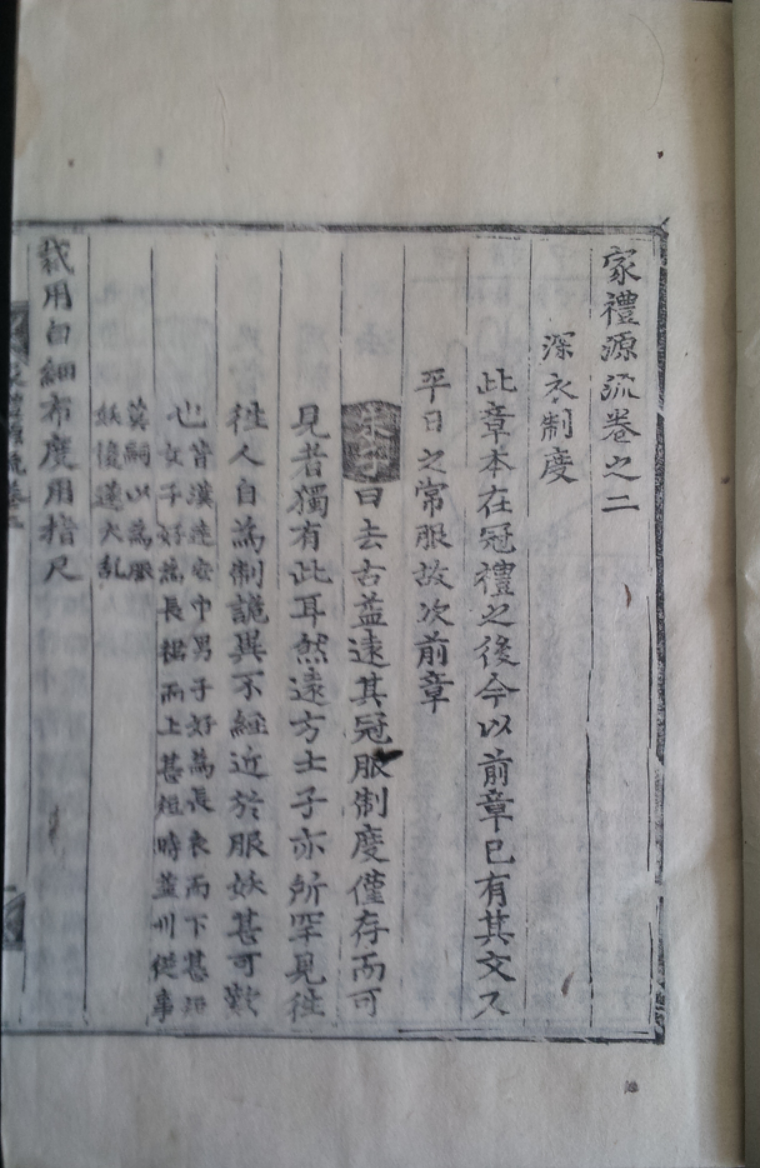 家禮源流卷之二
深衣制度
此章本在冠禮之後今以前章已有其文又
平日之常服故次前章
朱子曰去古益遠其冠服制度僅存而可
見者獨有此耳然遠方士子亦所罕見徃
徃人自為制詭異不經近於服妖甚可歎
也
皆漢建安中男子好為長衣而下甚短
女子好為長裙而上甚短時益州從事
莫嗣以為服
妖後遂大乱
裁用白細布度用指尺